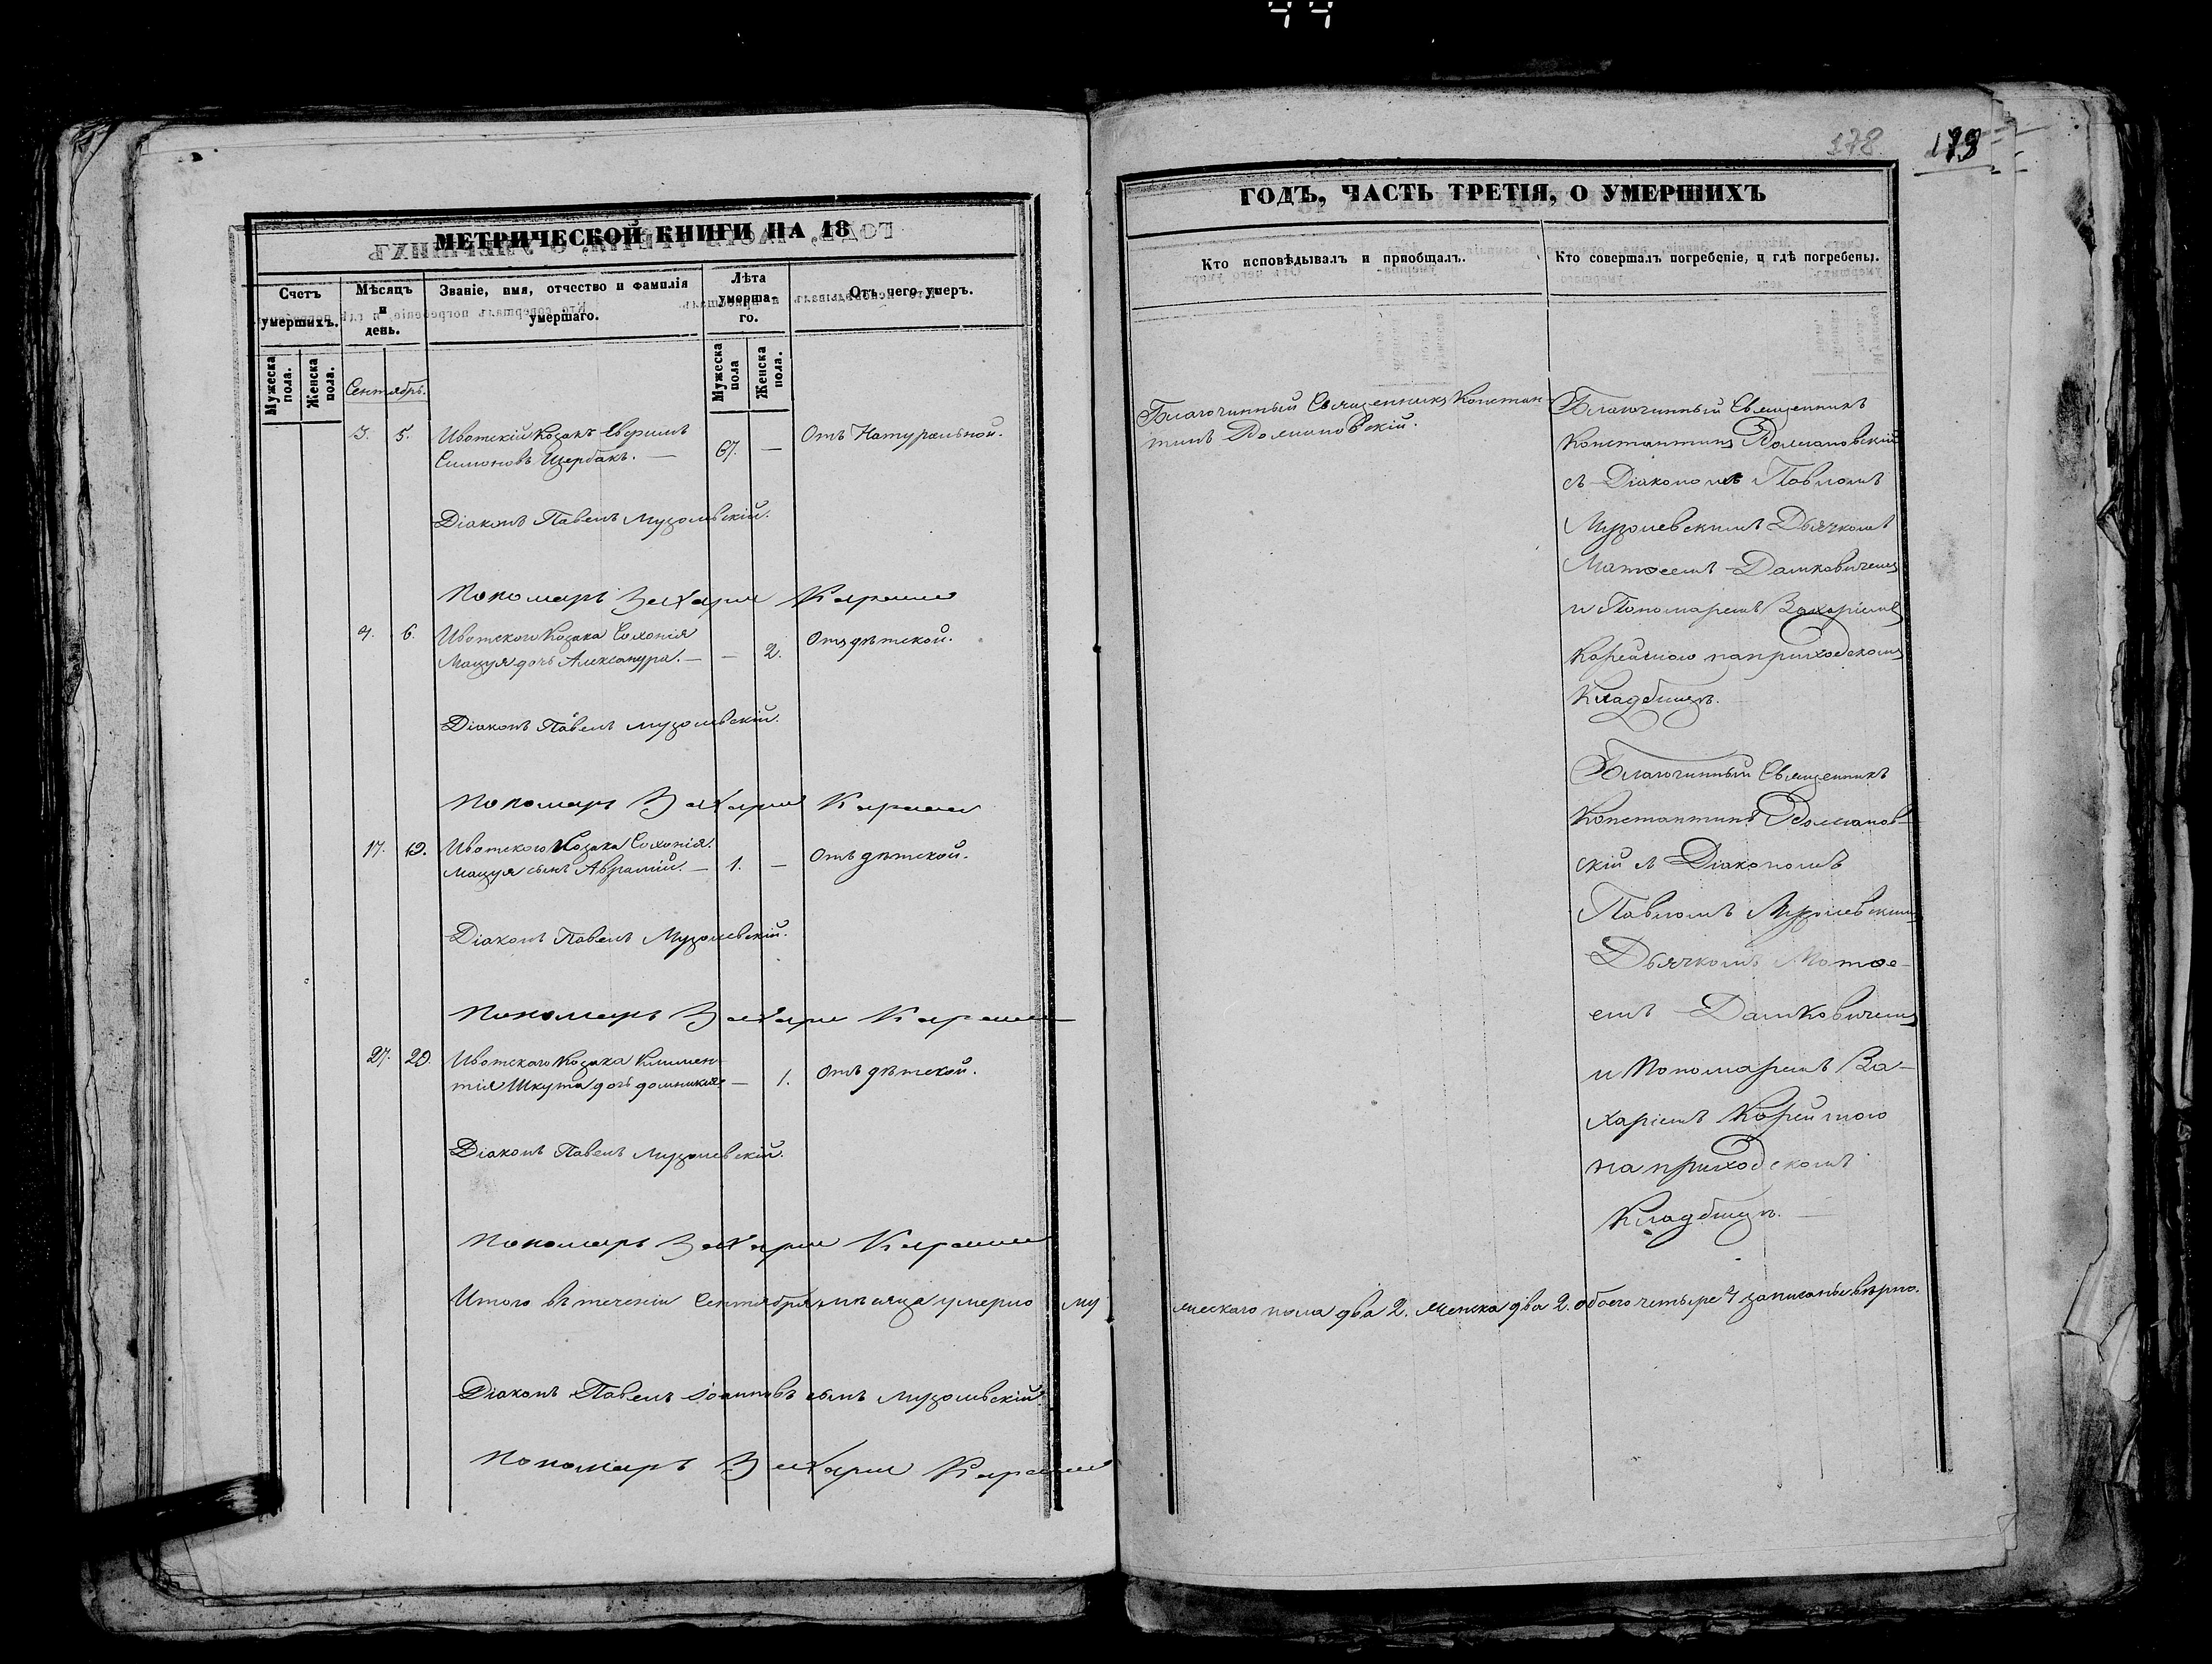 178
МЕТРИЧЕСКОЙ КНИГИ НА 18
Счетъ умершихъ.
Мужеска пола.
Женска пола.
Мѣсяцъ и день.
Званіе, имя, отчество и фамилія умершаго.
Лѣта умершаго.
Мужеска пола
Женска пола.
Отъ чего умеръ.
Сентябрь.
3. 5. Ивотскій Козакъ Ефримъ
Симоновъ Щербакъ. — 67. — Отъ Натуральной.
Діаконъ Павелъ Музолевскій.
Пономарь Захарий
4. 6. Ивотского Козака Софонія
Мацуя дочь Александра. — — 2. Отъ дѣтской.
Діаконъ Павелъ Музолевскій.
Пономарь Захарий
17. 19. Ивотского Козака Софонія
Мацуя сынъ Аврамій. — 1. — Отъ дѣтской.
Діаконъ Павелъ Музолевскій.
Пономарь Захарий
27. 29. Ивотскаго Козака Климен-
тія Шкута дочь Домникія — 1. Отъ дѣтской.
Діаконъ Павелъ Музолевскій.
Пономарь Захарий
Итого въ теченіи Сентября мѣсяца умерло му
Діаконъ Павелъ Іоанновъ сынъ Музолевскій
Пономарь Захарий
ГОДЪ, ЧАСТЬ ТРЕТІЯ, О УМЕРШИХЪ
Кто исповѣдывалъ и пріобщалъ.
Кто совершалъ погребеніе, и гдѣ погребены.
Благочинный Священникъ Констан-
тинъ Волмановскій.
Благочинный Священникъ
Константинъ Волмановскій
съ Діакономъ Павломъ
Музолевскимъ Дьячкомъ
Матѳеемъ Дашкевичемъ
и Пономаремъ Захаріемъ
на приходскомъ
Кладбищѣ.
Благочинный Священникъ
Константинъ Волманов-
скій съ Діакономъ
Павломъ Музолевскимъ
Дьячкомъ Матѳе-
емъ Дашковичемъ
и Пономаремъ За-
харіемъ
на приходскомъ
Кладбищѣ. —
жескаго пола два 2. женска два 2. обоего четыре 4 записаны вѣрно.